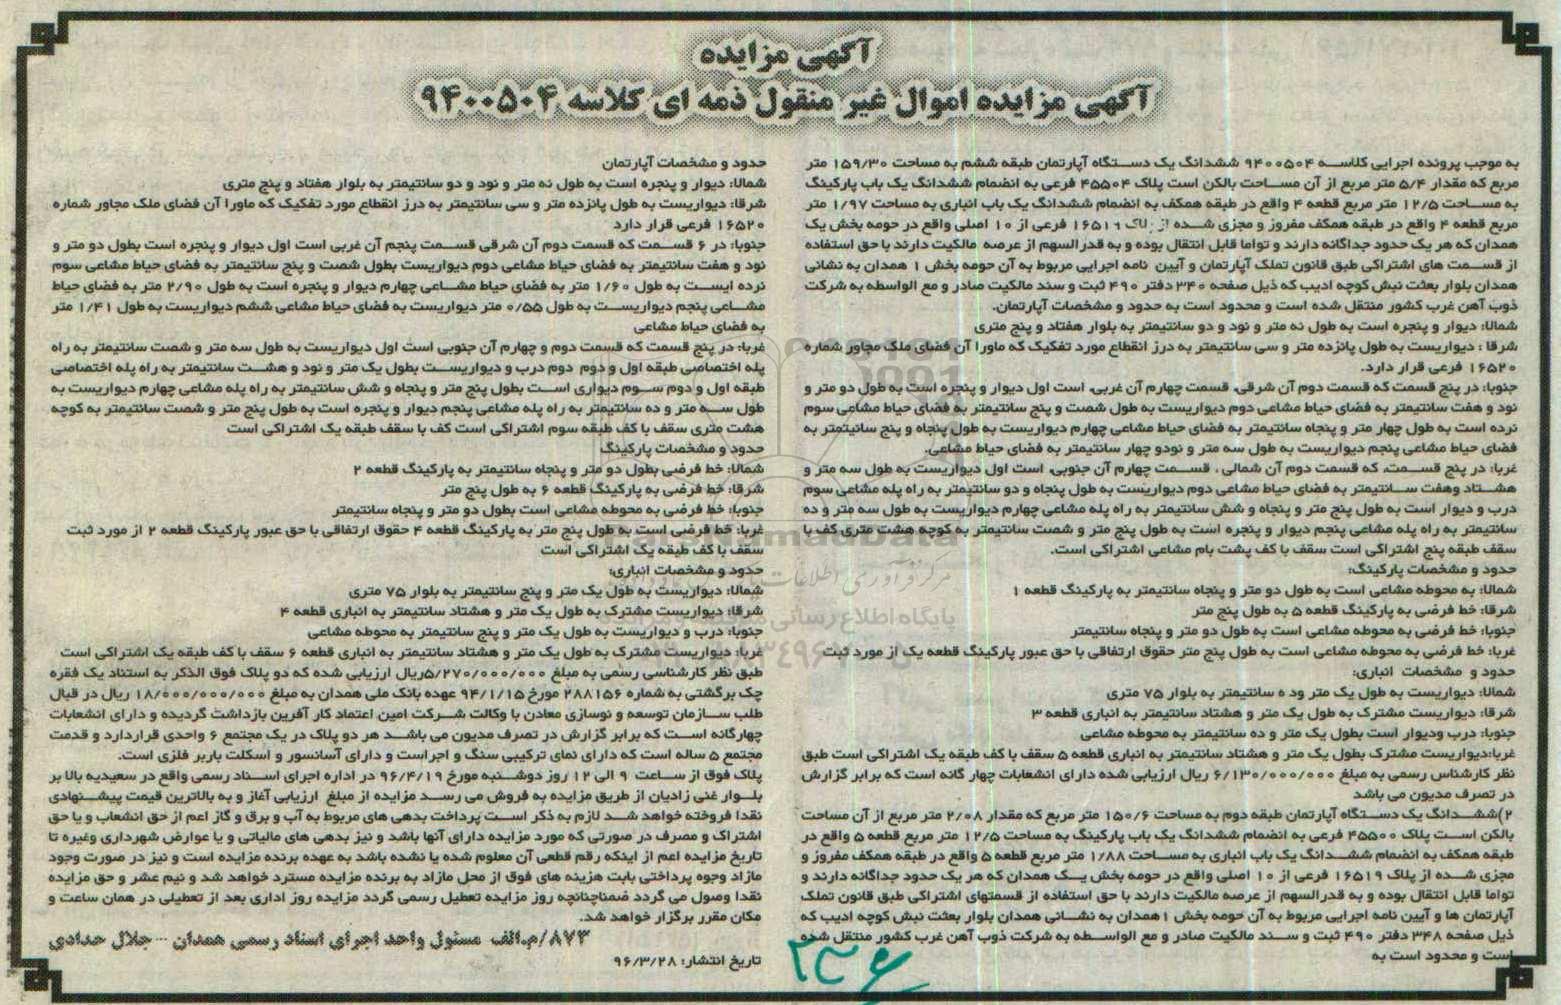 آگهی مزایده
آگهی مزایده اموال غیر منقول ذمه ای کلاسه ۹۴۰۰۵۰۴
به موجب پرونده اجرایی کلاسه ۹۴۰۰۵۰۴ ششدانگ یک دستگاه آپارتمان طبقه ششم به مساحت ۱۵۹/۳۰ متر
مربع که مقدار ۵/۴ متر مربع از آن مساحت بالکن است پلاک ۴۵۵۰۴ فرعی به انضمام ششدانگ یک باب پارکینگ
به مساحت ۱۲/۵ متر مربع قطعه ۴ واقع در طبقه همکف به انضمام ششدانگ یک باب انباری به مساحت ۱/۹۷ متر
مربع قطعه ۴ واقع در طبقه همکف مفروز و مجزی شده از پلاک ۱۶۵۱۹ فرعی از ۱۰ اصلی واقع در حومه بخش یک
همدان که هر یک حدود جداگانه دارند و تواما قابل انتقال بوده و به قدرالسهم از عرصه مالکیت دارند با حق استفاده
از قسمت های اشتراکی طبق قانون تملک آپارتمان و آیین نامه اجرایی مربوط به آن حومه بخش ۱ همدان به نشانی
همدان بلوار بعثت نبش کوچه ادیب که ذیل صفحه ۳۴۰ دفتر ۴۹۰ ثبت و سند مالکیت صادر و مع الواسطه به شرکت
ذوب آهن غرب کشور منتقل شده است و محدود است به حدود و مشخصات آپارتمان.
شمالا: دیوار و پنجره است به طول نه متر و نود و دو سانتیمتر به بلوار هفتاد و پنج متری
شرقا : دیواریست به طول پانزده متر و سی سانتیمتر به درز انقطاع مورد تفکیک که ماورا آن فضای ملک مجاور شماره
۱۶۵۲۰ فرعی قرار دارد.
جنوبا: در پنج قسمت که قسمت دوم آن شرقی، قسمت چهارم آن غربی، است اول دیوار و پنجره است به طول دو متر و
نود و هفت سانتیمتر به فضای حیاط مشاعی دوم دیواریست به طول شصت و پنج سانتیمتر به فضای حیاط مشاعی سوم
نرده است به طول چهار متر و پنجاه سانتیمتر به فضای حیاط مشاعی چهارم دیواریست به طول پنجاه و پنج سانتیمتر به
فضای حیاط مشاعی پنجم دیواریست به طول سه متر و نودو چهار سانتیمتر به فضای حیاط مشاعی.
غربا: در پنج قسمت، که قسمت دوم آن شمالی ، قسمت چهارم آن جنوبی، است اول دیواریست به طول سه متر و
هشتاد وهفت سانتیمتر به فضای حیاط مشاعی دوم دیواریست به طول پنجاه و دو سانتیمتر به راه پله مشاعی سوم
درب و دیوار است به طول پنج متر و پنجاه و شش سانتیمتر به راه پله مشاعی چهارم دیواریست به طول سه متر و ده
سانتیمتر به راه پله مشاعی پنجم دیوار و پنجره است به طول پنج متر و شصت سانتیمتر به کوچه هشت متری کف با
سقف طبقه پنج اشتراکی است سقف با کف پشت بام مشاعی اشتراکی است.
حدود و مشخصات پارکینگ:
شمالا: به محوطه مشاعی است به طول دو متر و پنجاه سانتیمتر به پارکینگ قطعه ۱
شرقا: خط فرضی به پارکینگ قطعه ۵ به طول پنج متر
جنوبا: خط فرضی به محوطه مشاعی است به طول دو متر و پنجاه سانتیمتر
غربا: خط فرضی به محوطه مشاعی است به طول پنج متر حقوق ارتفاقی با حق عبور پارکینگ قطعه یک از مورد ثبت
حدود و مشخصات انباری:
شمالا: دیواریست به طول یک متر وده سانتیمتر به بلوار ۷۵ متری
شرقا: دیواریست مشترک به طول یک متر و هشتاد سانتیمتر به انباری قطعه ۳
جنوبا: درب ودیوار است بطول یک متر و ده سانتیمتر به محوطه مشاعی
غربا:دیواریست مشترک بطول یک متر و هشتاد سانتیمتر به انباری قطعه ۵ سقف با کف طبقه یک اشتراکی است طبق
نظر کارشناس رسمی به مبلغ ۶/۱۳۰/۰۰۰/۰۰۰ ریال ارزیابی شده دارای انشعابات چهار گانه است که برابر گزارش
در تصرف مدیون می باشد
۲)ششدانگ یک دستگاه آپارتمان طبقه دوم به مساحت ۱۵۰/۶ متر مربع که مقدار ۲/۰۸ متر مربع از آن مساحت
بالکن است پلاک ۴۵۵۰۰ فرعی به انضمام ششدانگ یک باب پارکینگ به مساحت ۱۲/۵ متر مربع قطعه ۵ واقع در
طبقه همکف به انضمام ششدانگ یک باب انباری به مساحت ۱/۸۸ متر مربع قطعه ۵ واقع در طبقه همکف مفروز و
مجزی شده از پلاک ۱۶۵۱۹ فرعی از ۱۰ اصلی واقع در حومه بخش یک همدان که هر یک حدود جداگانه دارند و
تواما قابل انتقال بوده و به قدرالسهم از عرصه مالکیت دارند با حق استفاده از قسمتهای اشتراکی طبق قانون تملک
آپارتمان ها و آیین نامه اجرایی مربوط به آن حومه بخش ۱همدان به نشانی همدان بلوار بعثت نبش کوچه ادیب که
ذیل صفحه ۳۴۸ دفتر ۴۹۰ ثبت و سند مالکیت صادر و مع الواسطه به شرکت ذوب آهن غرب کشور منتقل شده
است و محدود است به
حدود و مشخصات آپارتمان
شمالا: دیوار و پنجره است به طول نه متر و نود و دو سانتیمتر به بلوار هفتاد و پنج متری
شرقا: دیواریست به طول پانزده متر و سی سانتیمتر به درز انقطاع مورد تفکیک که ماورا آن فضای ملک مجاور شماره
۱۶۵۲۰ فرعی قرار دارد
جنوبا: در ۶ قسمت که قسمت دوم آن شرقی قسمت پنجم آن غربی است اول دیوار و پنجره است بطول دو متر و
نود و هفت سانتیمتر به فضای حیاط مشاعی دوم دیواریست بطول شصت و پنج سانتیمتر به فضای حیاط مشاعی سوم
نرده ایست به طول ۱/۶۰ متر به فضای حیاط مشاعی چهارم دیوار و پنجره است به طول ۲/۹۰ متر به فضای حیاط
مشاعی پنجم دیواریست به طول ۰/۵۵ متر دیواریست به فضای حیاط مشاعی ششم دیواریست به طول ۱/۴۱ متر
به فضای حیاط مشاعی
غربا: در پنج قسمت که قسمت دوم و چهارم آن جنوبی است اول دیواریست به طول سه متر و شصت سانتیمتر به راه
پله اختصاصی طبقه اول و دوم دوم درب و دیواریست بطول یک متر و نود و هشت سانتیمتر به راه پله اختصاصی
طبقه اول و دوم سوم دیواری است بطول پنج متر و پنجاه و شش سانتیمتر به راه پله مشاعی چهارم دیواریست به
طول سه متر و ده سانتیمتر به راه پله مشاعی پنجم دیوار و پنجره است به طول پنج متر و شصت سانتیمتر به کوچه
هشت متری سقف با کف طبقه سوم اشتراکی است کف با سقف طبقه یک اشتراکی است
حدود و مشخصات پارکینگ
شمالا: خط فرضی بطول دو متر و پنجاه سانتیمتر به پارکینگ قطعه ۲
شرقا: خط فرضی به پارکینگ قطعه ۶ به طول پنج متر
جنوبا: خط فرضی به محوطه مشاعی است بطول دو متر و پنجاه سانتیمتر
غربا: خط فرضی است به طول پنج متر به پارکینگ قطعه ۴ حقوق ارتفاقی با حق عبور پارکینگ قطعه ۲ از مورد ثبت
سقف با کف طبقه یک اشتراکی است
حدود و مشخصات انباری:
شمالا: دیواریست به طول یک متر و پنج سانتیمتر به بلوار ۷۵ متری
شرقا: دیواریست مشترک به طول یک متر و هشتاد سانتیمتر به انباری قطعه ۴
جنوبا: درب و دیواریست به طول یک متر و پنج سانتیمتر به محوطه مشاعی
غربا: دیواریست مشترک به طول یک متر و هشتاد سانتیمتر به انباری قطعه ۶ سقف با کف طبقه یک اشتراکی است
طبق نظر کارشناسی رسمی به مبلغ ۵/۲۷۰/۰۰۰/۰۰۰ریال ارزیابی شده که دو پلاک فوق الذکر به استناد یک فقره
چک برگشتی به شماره ۲۸۸۱۵۶ مورخ ۹۴/۱/۱۵ عهده بانک ملی همدان به مبلغ ۱۸/۰۰۰/۰۰۰/۰۰۰ ریال در قبال
طلب سازمان توسعه و نوسازی معادن با وکالت شرکت امین اعتماد کار آفرین بازداشت گردیده و دارای انشعابات
چهارگانه است که برابر گزارش در تصرف مدیون می باشد هر دو پلاک در یک مجتمع ۶ واحدی قراردارد و قدمت
مجتمع ۵ ساله است که دارای نمای ترکیبی سنگ و اجراست و دارای آسانسور و اسکلت باربر فلزی است.
پلاک فوق از ساعت ۹ الی ۱۲ روز دوشنبه مورخ ۹۶/۴/۱۹ در اداره اجرای اسناد رسمی واقع در سعیدیه بالا بر
بلوار غنی زادیان از طریق مزایده به فروش می رسد مزایده از مبلغ ارزیابی آغاز و به بالاترین قیمت پیشنهادی
نقدا فروخته خواهد شد لازم به ذکر است پرداخت بدهی های مربوط به آب و برق و گاز اعم از حق انشعاب و یا حق
اشتراک و مصرف در صورتی که مورد مزایده دارای آنها باشد و نیز بدهی های مالیاتی و یا عوارض شهرداری وغیره تا
تاریخ مزایده اعم از اینکه رقم قطعی آن معلوم شده یا نشده باشد به عهده برنده مزایده است و نیز در صورت وجود
مازاد وجوه پرداختی بابت هزینه های فوق از محل مازاد به برنده مزایده مسترد خواهد شد و نیم عشر و حق مزایده
نقدا وصول می گردد ضمناچنانچه روز مزایده تعطیل رسمی گردد مزایده روز اداری بعد از تعطیلی در همان ساعت و
مکان مقرر برگزار خواهد شد.
۸۷۳/م.الف مسئول واحد اجرای اسناد رسمی همدان -- جلال حدادی
تاریخ انتشار: ۹۶/۳/۲۸